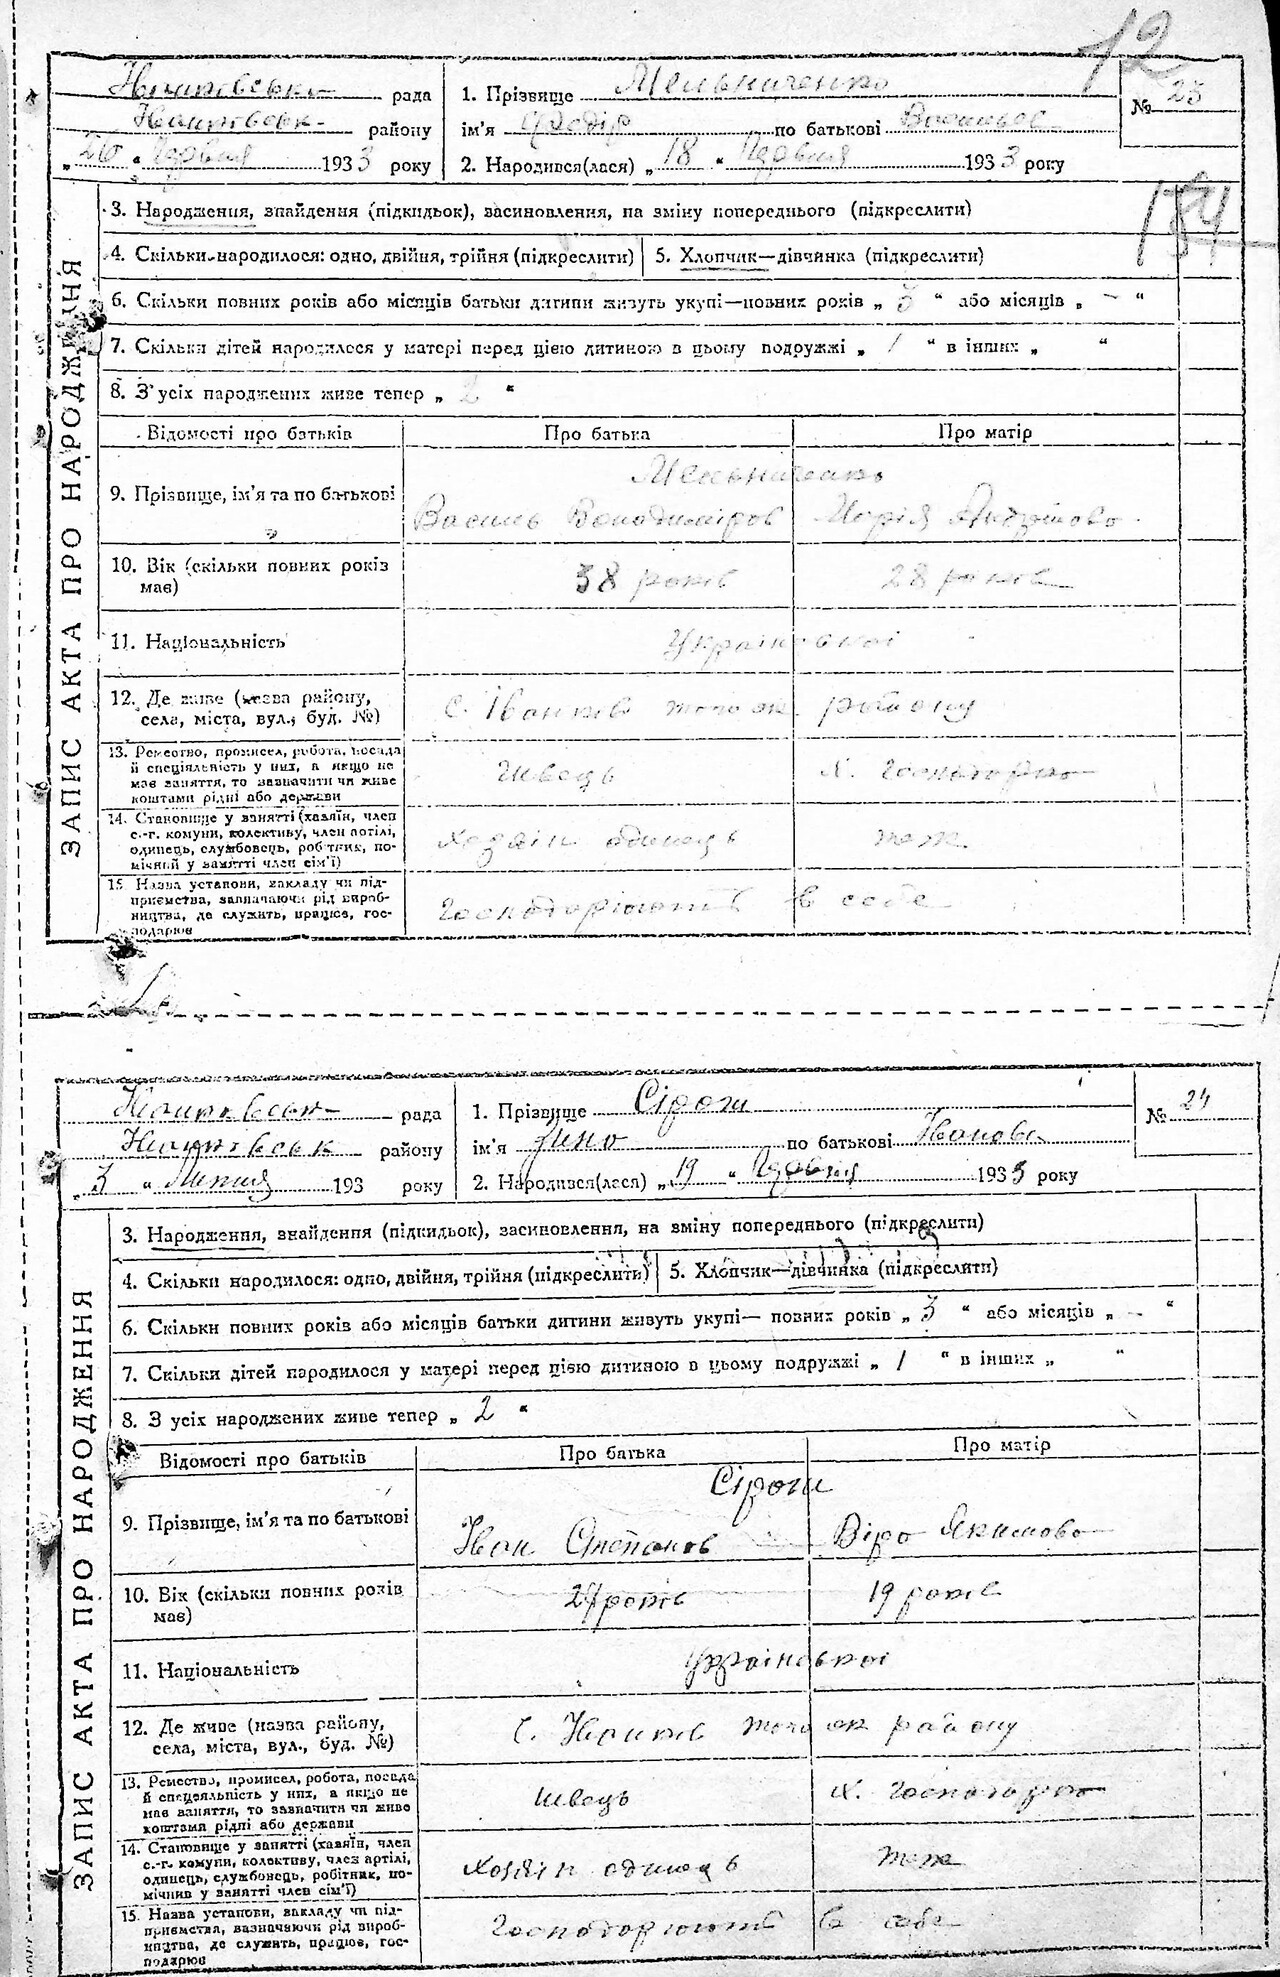 12
Іванківська рада
Іванківськ району
„ 26 “ червня 1933 року
1. Прізвище Мельниченко
ім'я Федір по батькові Васильов
2. Народився(лася) „ 18 “ Червня 1933 року
№ 23
184
ЗАПИС АКТА ПРО НАРОДЖЕННЯ
3. Народження, знайдення (підкидьок), засиновлення, на зміну попереднього (підкреслити)
4. Скільки народилося: одно, двійня, трійня (підкреслити) 5. Хлопчик—дівчинка (підкреслити)
6. Скільки повних років або місяців батьки дитини живуть укупі—повних років „ 3 “ або місяців „ - “
7. Скільки дітей народилося у матері перед цією дитиною в цьому подружжі „ 1 “ в інших „ “
8. З усіх народжених живе тепер „ 2 “
Відомості про батьків Про батька Про матір
Мельниченко
9. Прізвище, ім'я та по батькові Василь Володиміров Марія Андріївна
10. Вік (скільки повних років має) 38 років 28 років
11. Національність Української
12. Де живе (назва району,
села, міста, вул., буд. №) с. Іванків того ж району
13. Ремество, промисел, робота, посада
й спеціяльність у них, а якщо не
має заняття, то зазначити чи живе
коштами рідні або держави
Швець Х. Господарка
14. Становище у занятті (хазяїн, член
с.-г. комуни, колективу, член артілі,
одинець, службовець, робітник, по-
мічний у занятті член сім'ї)
хозяїн одинець теж
15. Назва установи, закладу чи під-
приємства, зазначаючи рід вироб-
ництва, де служить, працює, гос-
подарює
Господарюють в себе
Іванківськ рада
Іванківськ району
„ 3 “ Липня 193 року
1. Прізвище Сірош
ім'я Ліна по батькові Іванова
2. Народився(лася) „ 19 “ Червня 1933 року
№ 24
ЗАПИС АКТА ПРО НАРОДЖЕННЯ
3. Народження, знайдення (підкидьок), засиновлення, на зміну попереднього (підкреслити)
4. Скільки народилося: одно, двійня, трійня (підкреслити) 5. Хлопчик—дівчинка (підкреслити)
6. Скільки повних років або місяців батьки дитини живуть укупі— повних років „ 3 “ або місяців „ - “
7. Скільки дітей народилося у матері перед цією дитиною в цьому подружжі „ 1 “ в інших „ “
8. З усіх народжених живе тепер „ 2 “
Відомості про батьків Про батька Про матір
Сірош
9. Прізвище, ім'я та по батькові Іван Степанов Віра Якимова
10. Вік (скільки повних років має) 27 років 19 років
11. Національність Української
12. Де живе (назва району,
села, міста, вул., буд. №) с. Іванків того ж району
13. Ремество, промисел, робота, посада
й спеціяльність у них, а якщо не
має заняття, то зазначити чи живе
коштами рідні або держави
швець Х. Господарка
14. Становище у занятті (хазяїн, член
с.-г. комуни, колективу, член артілі,
одинець, службовець, робітник, по-
мічний у занятті член сім'ї)
хозяїн одинець теж
15. Назва установи, закладу чи під-
приємства, зазначаючи рід вироб-
ництва, де служить, працює, гос-
подарює
Господарюють в себе